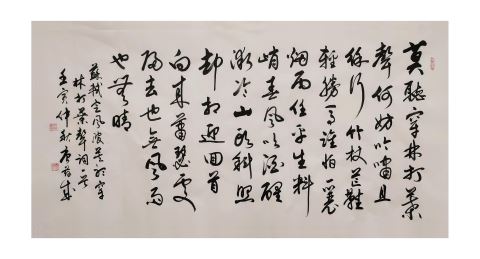 莫聽穿林打葉
聲何妨吟嘯且
徐行竹杖芒鞋
輕勝馬誰怕一蓑
烟雨任平生料
峭春風吹酒醒
微冷山頭斜照
却相迎回首
向來蕭瑟處
歸去也無風雨
也無晴
蘇軾定風波莫聽穿
林打葉聲詞一首
壬寅仲秋